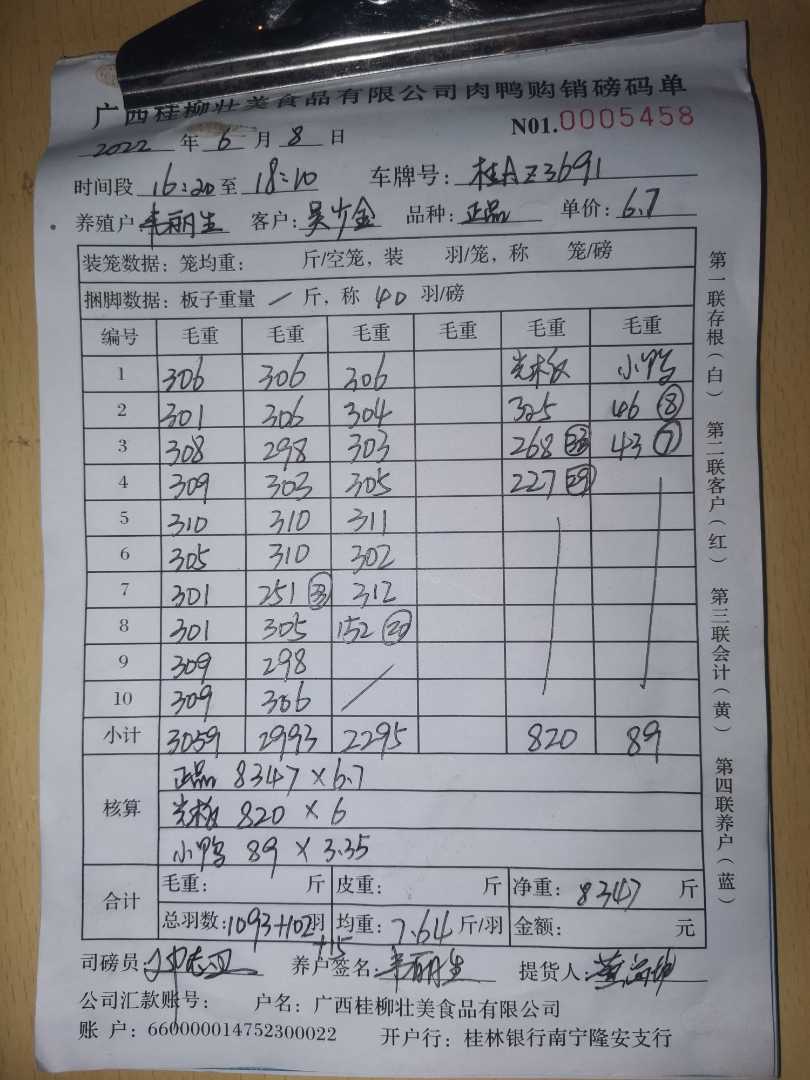 广西桂柳壮美食品有限公司肉鸭购销磅码单
2022 年 6 月 8 日 N01.0005458
时间段 16:20 至 18:10 车牌号: 桂AZ3691
养殖户 丽生 客户: 吴少金 品种: 正品 单价: 6.7
装笼数据: 笼均重: 斤/空笼, 装 羽/笼, 称 笼/磅
捆脚数据: 板子重量 / 斤, 称 40 羽/磅
编号 毛重 毛重 毛重 毛重 毛重 毛重
1 306 306 306 光板 小鸭
2 301 306 304 325 46 ⑧
3 308 298 303 268 33 43 ⑦
4 309 303 305 227 29
5 310 310 311
6 305 310 302
7 301 251 33 312
8 301 305 152 20
9 309 298
10 309 306 /
小计 3059 2993 2295 820 89
核算 正品 8347 × 6.7
光板 820 × 6
小鸭 89 × 3.35
合计 毛重: 斤 皮重: 斤 净重: 8347 斤
总羽数: 1093+102羽 均重: 7.64 斤/羽 金额: 元
+15
司磅员: 养户签名: 丽生 提货人:
公司汇款账号: 户名: 广西桂柳壮美食品有限公司
账 户: 660000014752300022 开户行: 桂林银行南宁隆安支行
第一联存根(白) 第二联客户(红) 第三联会计(黄) 第四联养户(蓝)